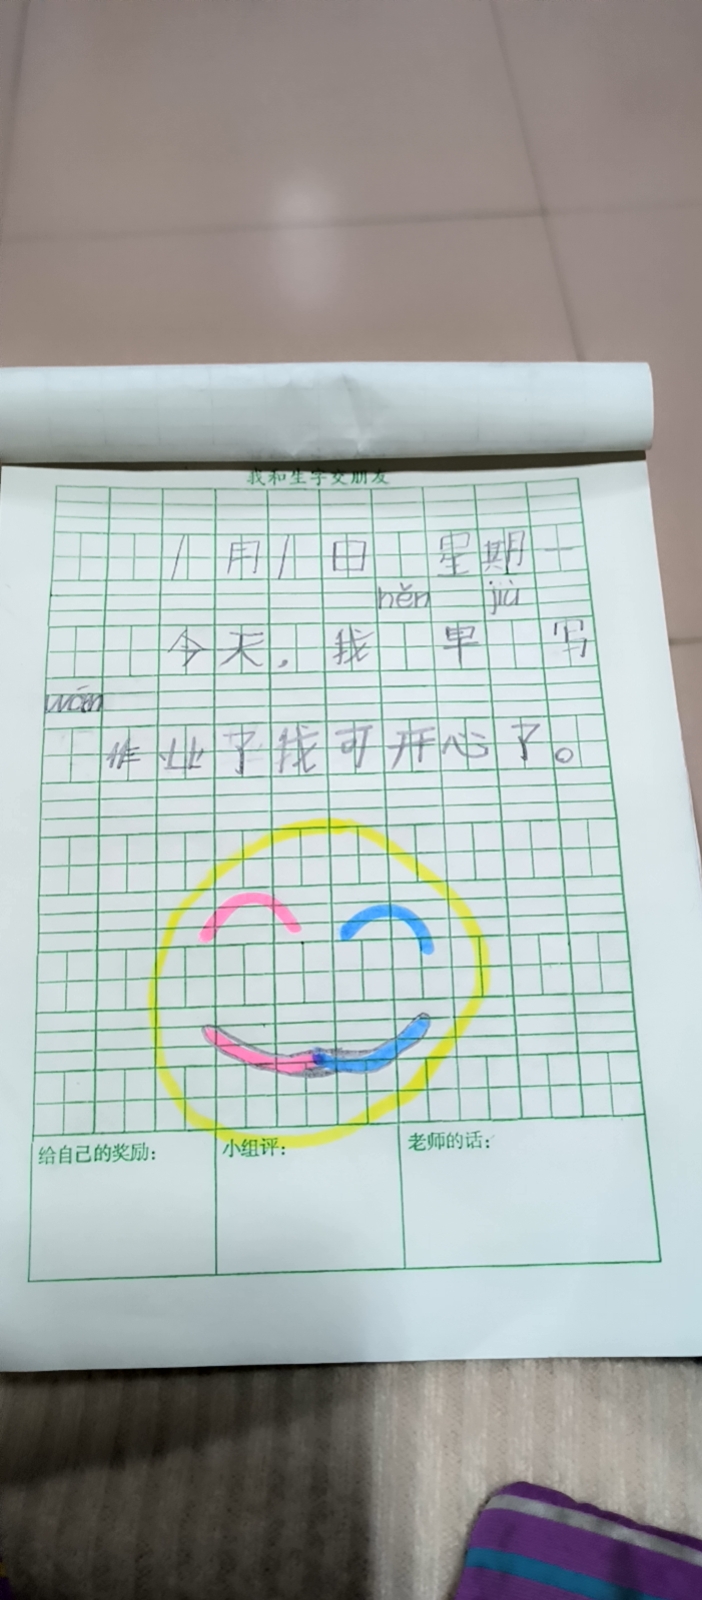 我和生字交朋友
1月1日 星期一
něn jiù
今天,我 早 写
wán
作业了我可开心了。
给自己的奖励: 小组评: 老师的话: